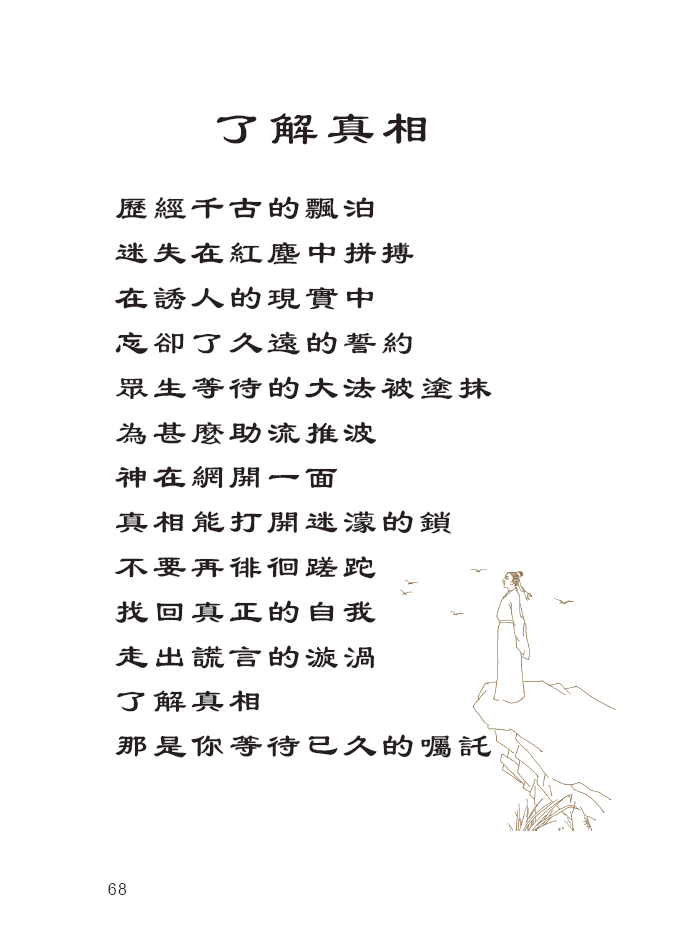 了解真相
歷經千古的飄泊
迷失在紅塵中拼搏
在誘人的現實中
忘卻了久遠的誓約
眾生等待的大法被塗抹
為甚麼助流推波
神在網開一面
真相能打開迷濛的鎖
不要再徘徊蹉跎
找回真正的自我
走出謊言的漩渦
了解真相
那是你等待已久的囑託
68